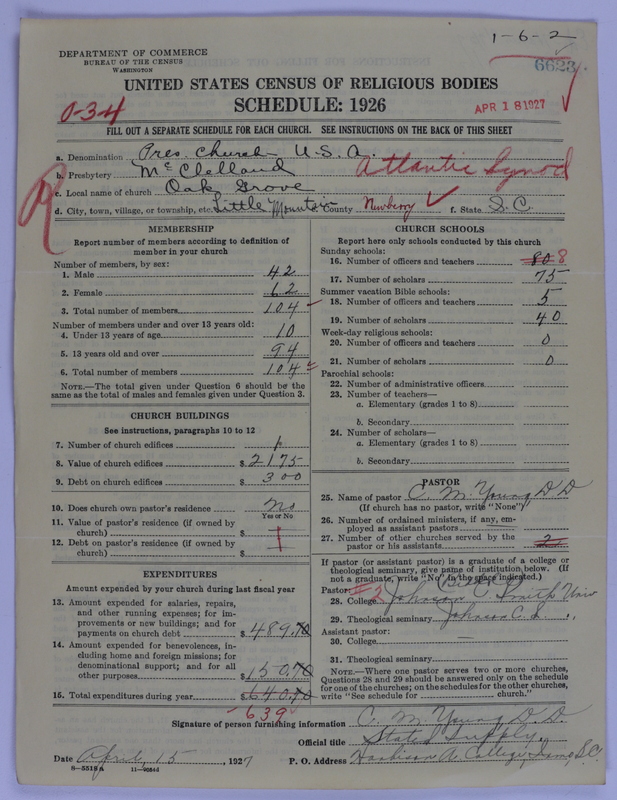 1-6-2
DEPARTMENT OF COMMERCE
BUREAU OF THE CENSUS
WASHINGTON
6623
UNITED STATES CENSUS OF RELIGIOUS BODIES
SCHEDULE: 1926
0-34
APR 18 1927
FILL OUT A SEPARATE SCHEDULE FOR EACH CHURCH. SEE INSTRUCTIONS ON THE BACK OF THIS SHEET
a. Denomination Pres. Church U.S.A.
b. Presbytery McClelland Atlantic Synod
R
c. Local name of church Oak Grove
d. City, town, village, or township, etc. Little Mountain County Newberry f. State S.C.
MEMBERSHIP
Report number of members according to definition of
member in your church
Number of members, by sex:
1. Male 42
2. Female 62
3. Total number of members 104
Number of members under and over 13 years old:
4. Under 13 years of age 10
5. 13 years old and over 94
6. Total number of members 104
NOTE.—The total given under Question 6 should be the
same as the total of males and females given under Question 3.
CHURCH BUILDINGS
See instructions, paragraphs 10 to 12
7. Number of church edifices 1
8. Value of church edifices $ 2175
9. Debt on church edifices $ 300
10. Does church own pastor's residence No
Yes or No
11. Value of pastor's residence (if owned by
church) $
12. Debt on pastor's residence (if owned by
church) $
EXPENDITURES
Amount expended by your church during last fiscal year
13. Amount expended for salaries, repairs,
and other running expenses; for im-
provements or new buildings; and for
payments on church debt $ 489.70
14. Amount expended for benevolences, in-
cluding home and foreign missions; for
denominational support; and for all
other purposes $ 150.70
15. Total expenditures during year $ 640.70
639
CHURCH SCHOOLS
Report here only schools conducted by this church
Sunday schools:
16. Number of officers and teachers 80 8
17. Number of scholars 75
Summer vacation Bible schools:
18. Number of officers and teachers 5
19. Number of scholars 40
Week-day religious schools:
20. Number of officers and teachers 0
21. Number of scholars 0
Parochial schools:
22. Number of administrative officers
23. Number of teachers—
a. Elementary (grades 1 to 8)
b. Secondary
24. Number of scholars—
a. Elementary (grades 1 to 8)
b. Secondary
PASTOR
25. Name of pastor C. M. Young D D
(If church has no pastor, write "None")
26. Number of ordained ministers, if any, em-
ployed as assistant pastors
27. Number of other churches served by the
pastor or his assistants 2
If pastor (or assistant pastor) is a graduate of a college or
theological seminary, give name of institution below. (If
not a graduate, write "No" in the space indicated.)
Pastor: #2
28. College Johnson C. Smith Univ
29. Theological seminary Johnson C. S. "
Assistant pastor:
30. College —
31. Theological seminary
NOTE.—Where one pastor serves two or more churches,
Questions 28 and 29 should be answered only on the schedule
for one of the churches; on the schedules for the other churches,
write "See schedule for church."
Signature of person furnishing information C. M. Young D.D.
Official title Stated Supply.
Date April, 15, 1927 P. O. Address Harbison A. College, Irmo, S.C.
8-5518a 11-20544